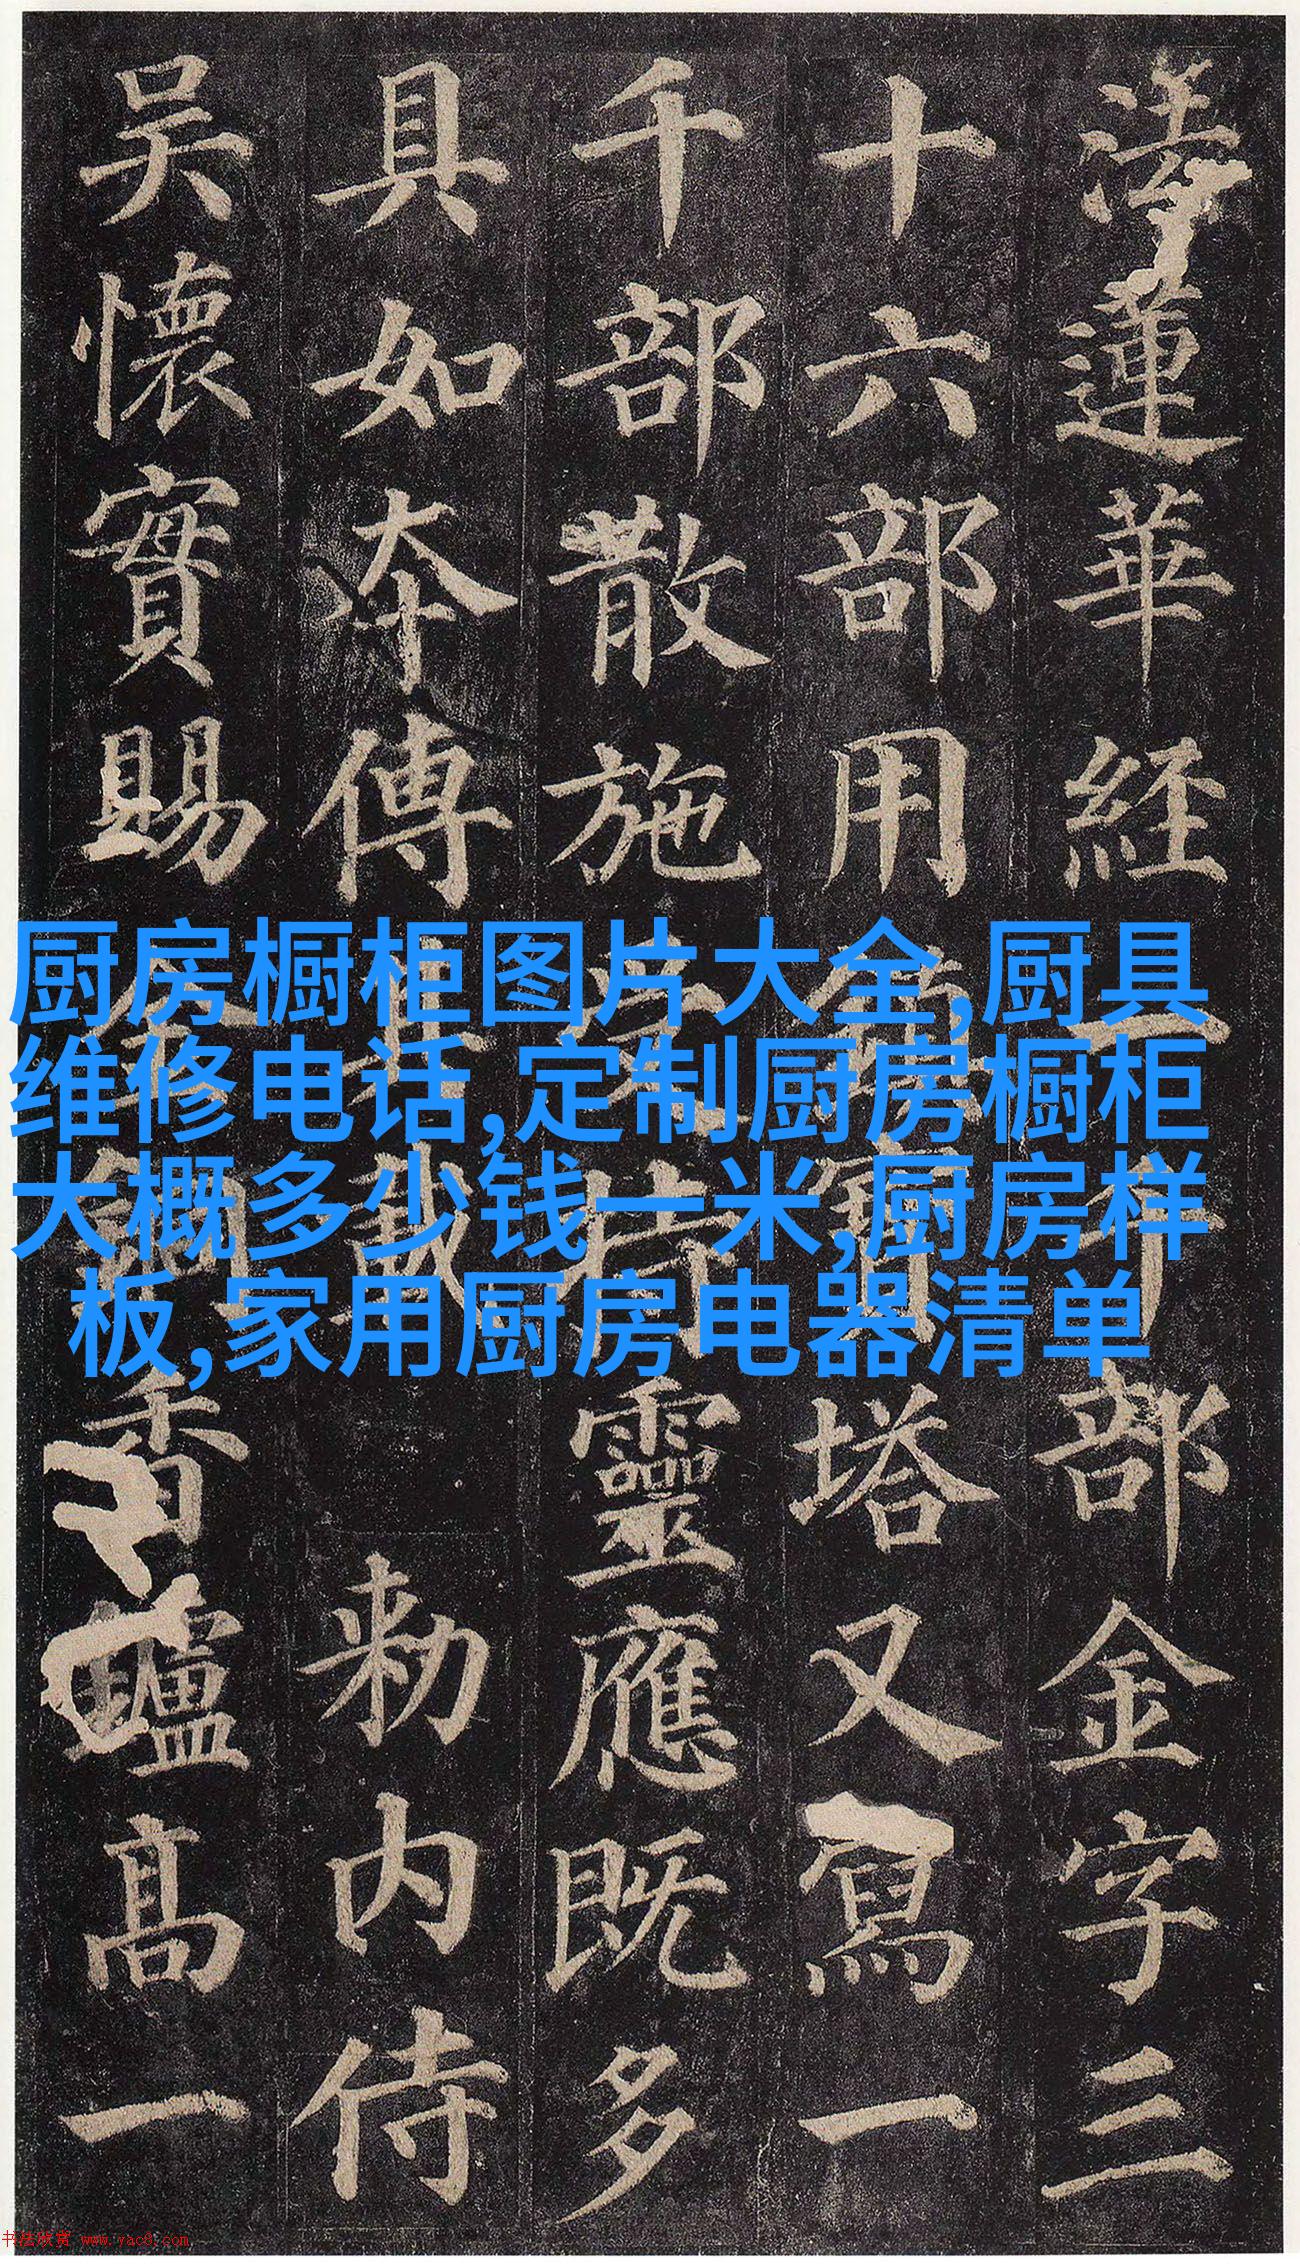 法蓮華経一千部金字三
十六部用鎮寶塔又寫一
千部散施受持靈應既多
具如夲傳其載 勅内侍
吴懷實賜金銅香鑪高一
厨房橱柜图片大全,厨具
维修电话,定制厨房橱柜
大概多少钱一米,厨房样
板,家用厨房电器清单
书法欣赏 www.yac8.com